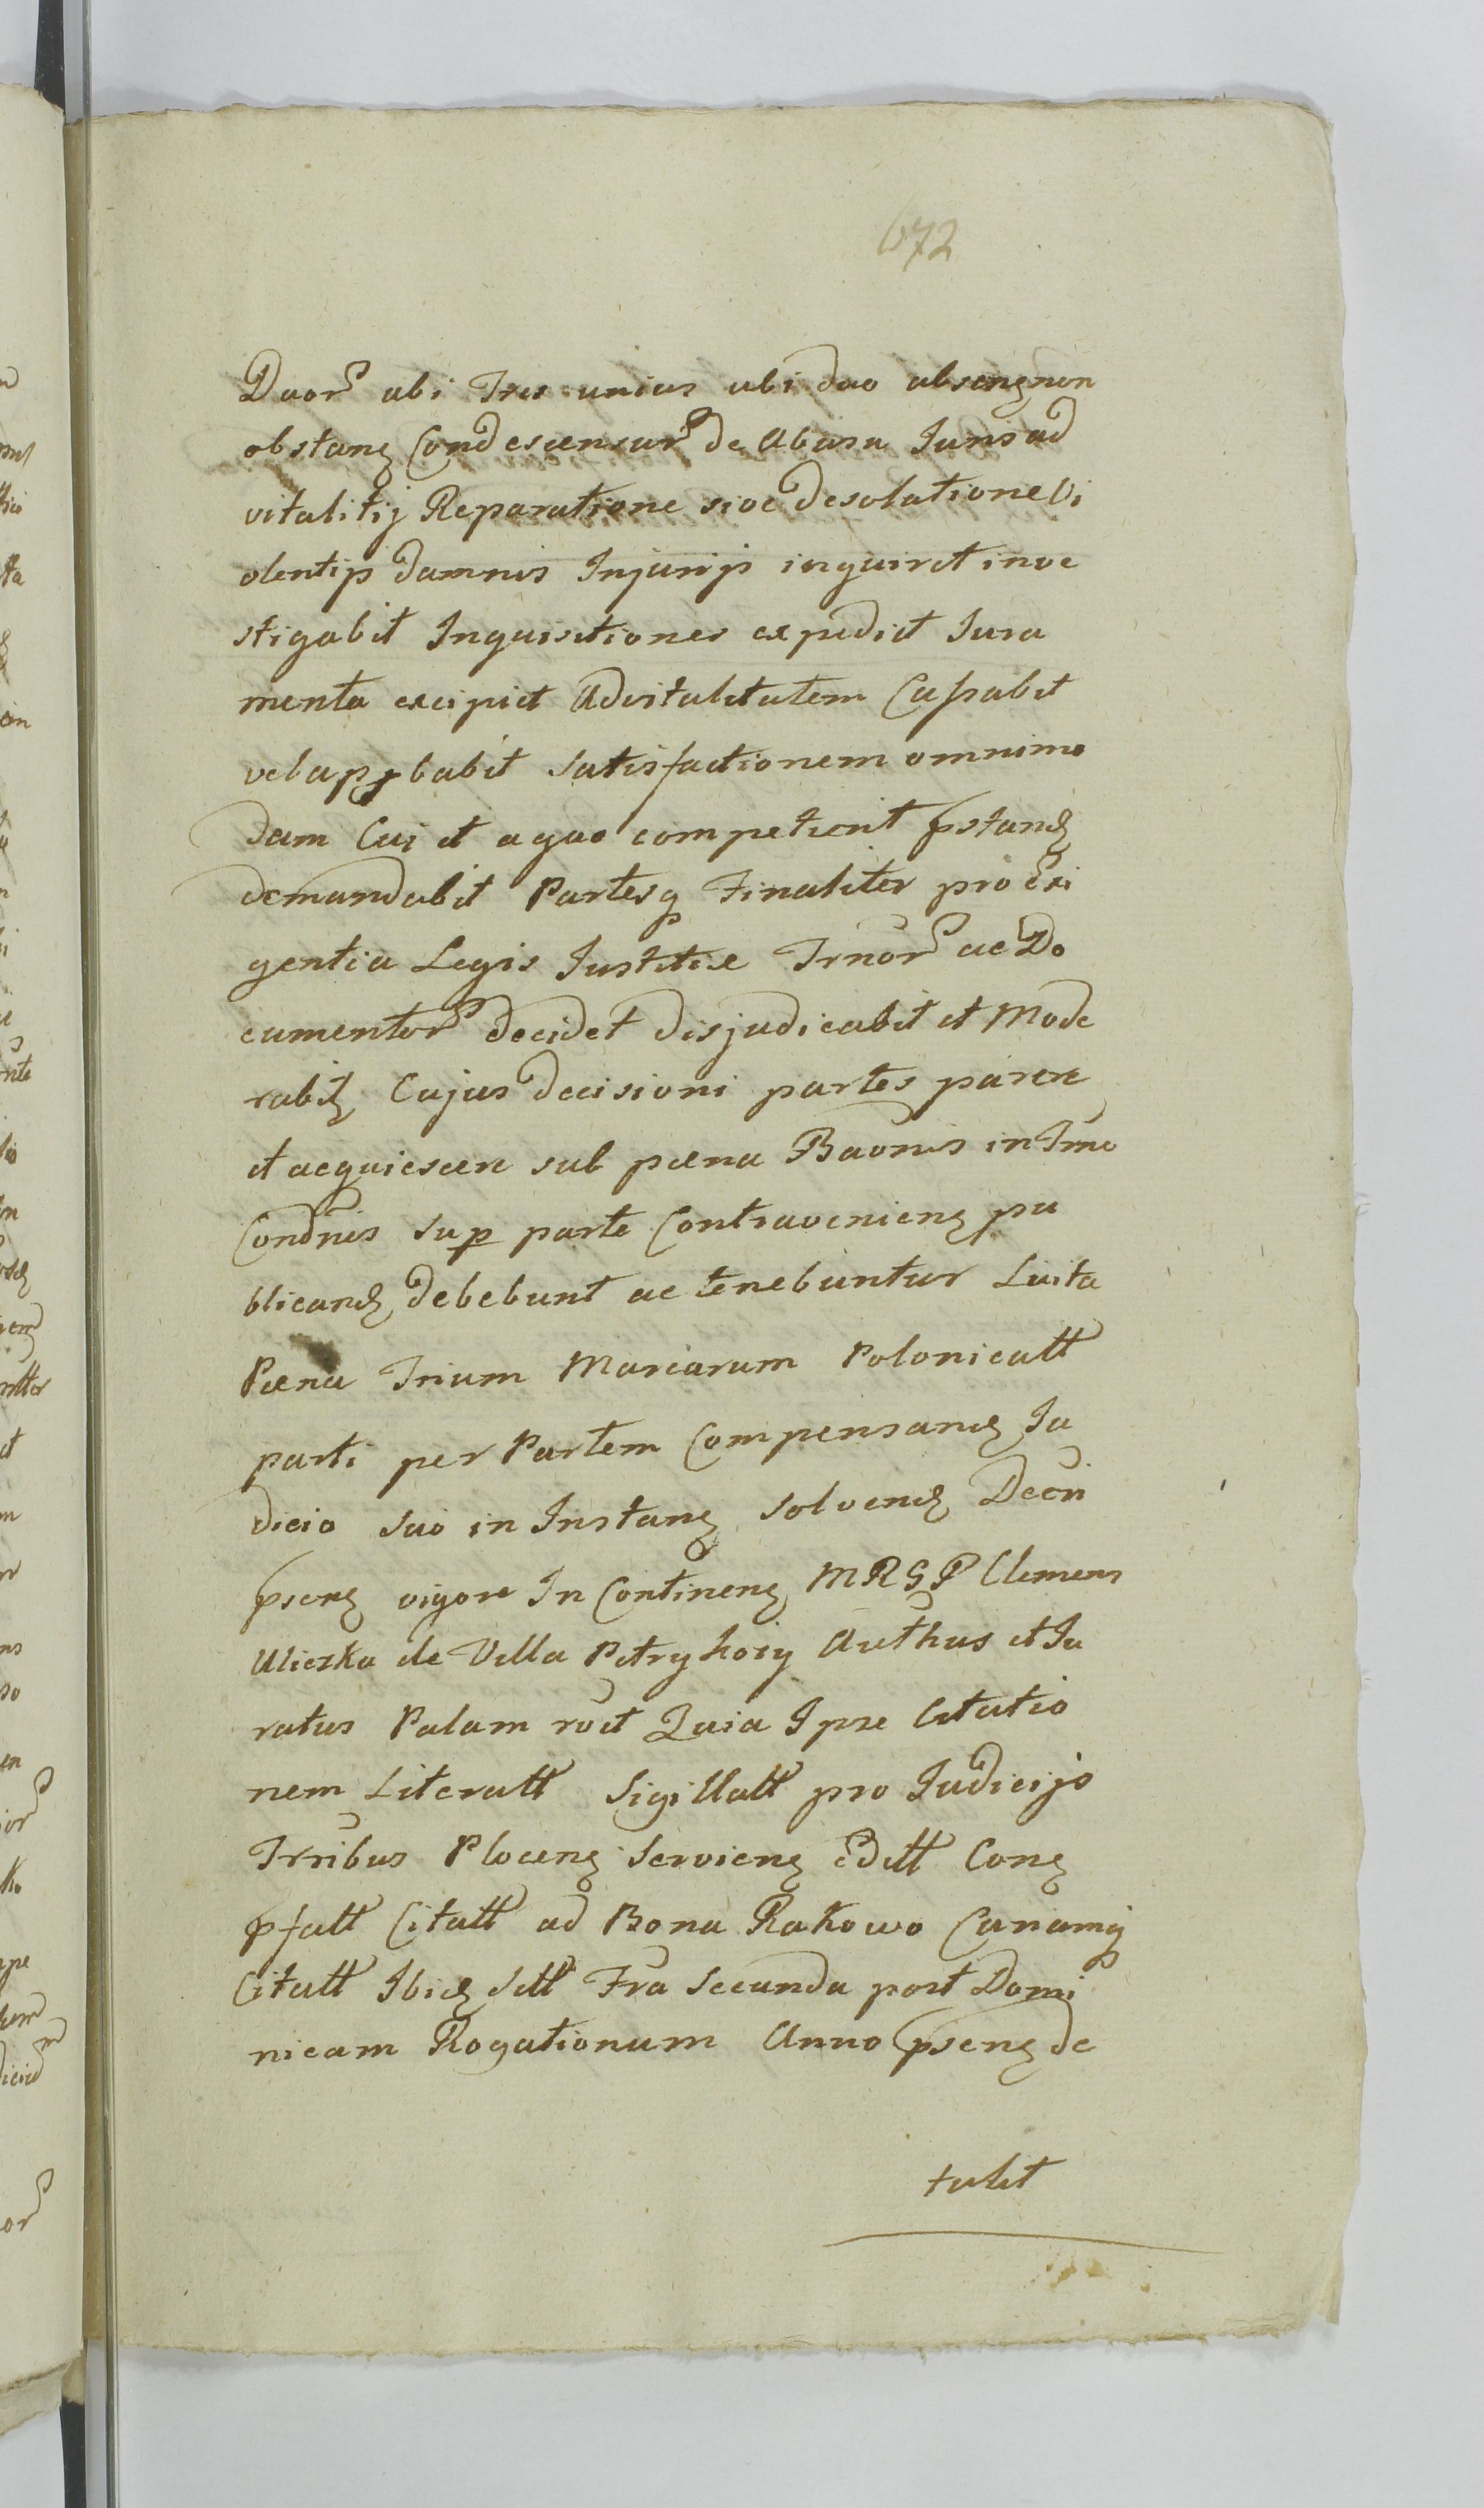 672
Duor ubi Tres unius ubi duo absenꝫ non
obstanꝫ Condescensur de Abusu Juris ad
vitalitij Reparatione sive Desolatione Vi
olentijs damnis Injurijs inquiret inve
stigabit Inquisitiones expediet Jura
menta excipiet Advitalitatem Cassabit
vel approbabit Satisfactionem omnimo
dam Cui et a quo competierit pstandꝫ
demandabit Partesqꝫ Finaliter pro Exi
gentia Legis Justitiæ Trnor ac Do
cumentor decidet disjudicabit et Mode
rabitꝫ Cujus decisioni partes parere
et acquiescere sub pæna Baonis in Trno
Condnis Sup parte Contravenienꝫ pu
blicandꝫ debebunt ac tenebuntur Luita
Pæna Trium Marcarum Polonicatt
parti per Partem Compensandꝫ Ju
dicio suo in Instanꝫ solvendꝫ Decti
psenꝫ vigore In Continenꝫ MRSP Clemens
Uliczka de Villa Petrykozy Authus et Ju
ratus Palam rčit Quia Ipse Citatio
nem Literatt Sigillatt pro Judicijs
Trribus Plocenꝫ Servienꝫ Editt Conꝫ
pfatt Citatt ad Bona Rakowo Curiamqꝫ
Citatt Ibidꝫ Sitt Fra Secunda post Domi
nicam Rogationum Anno psenꝫ de
tulit